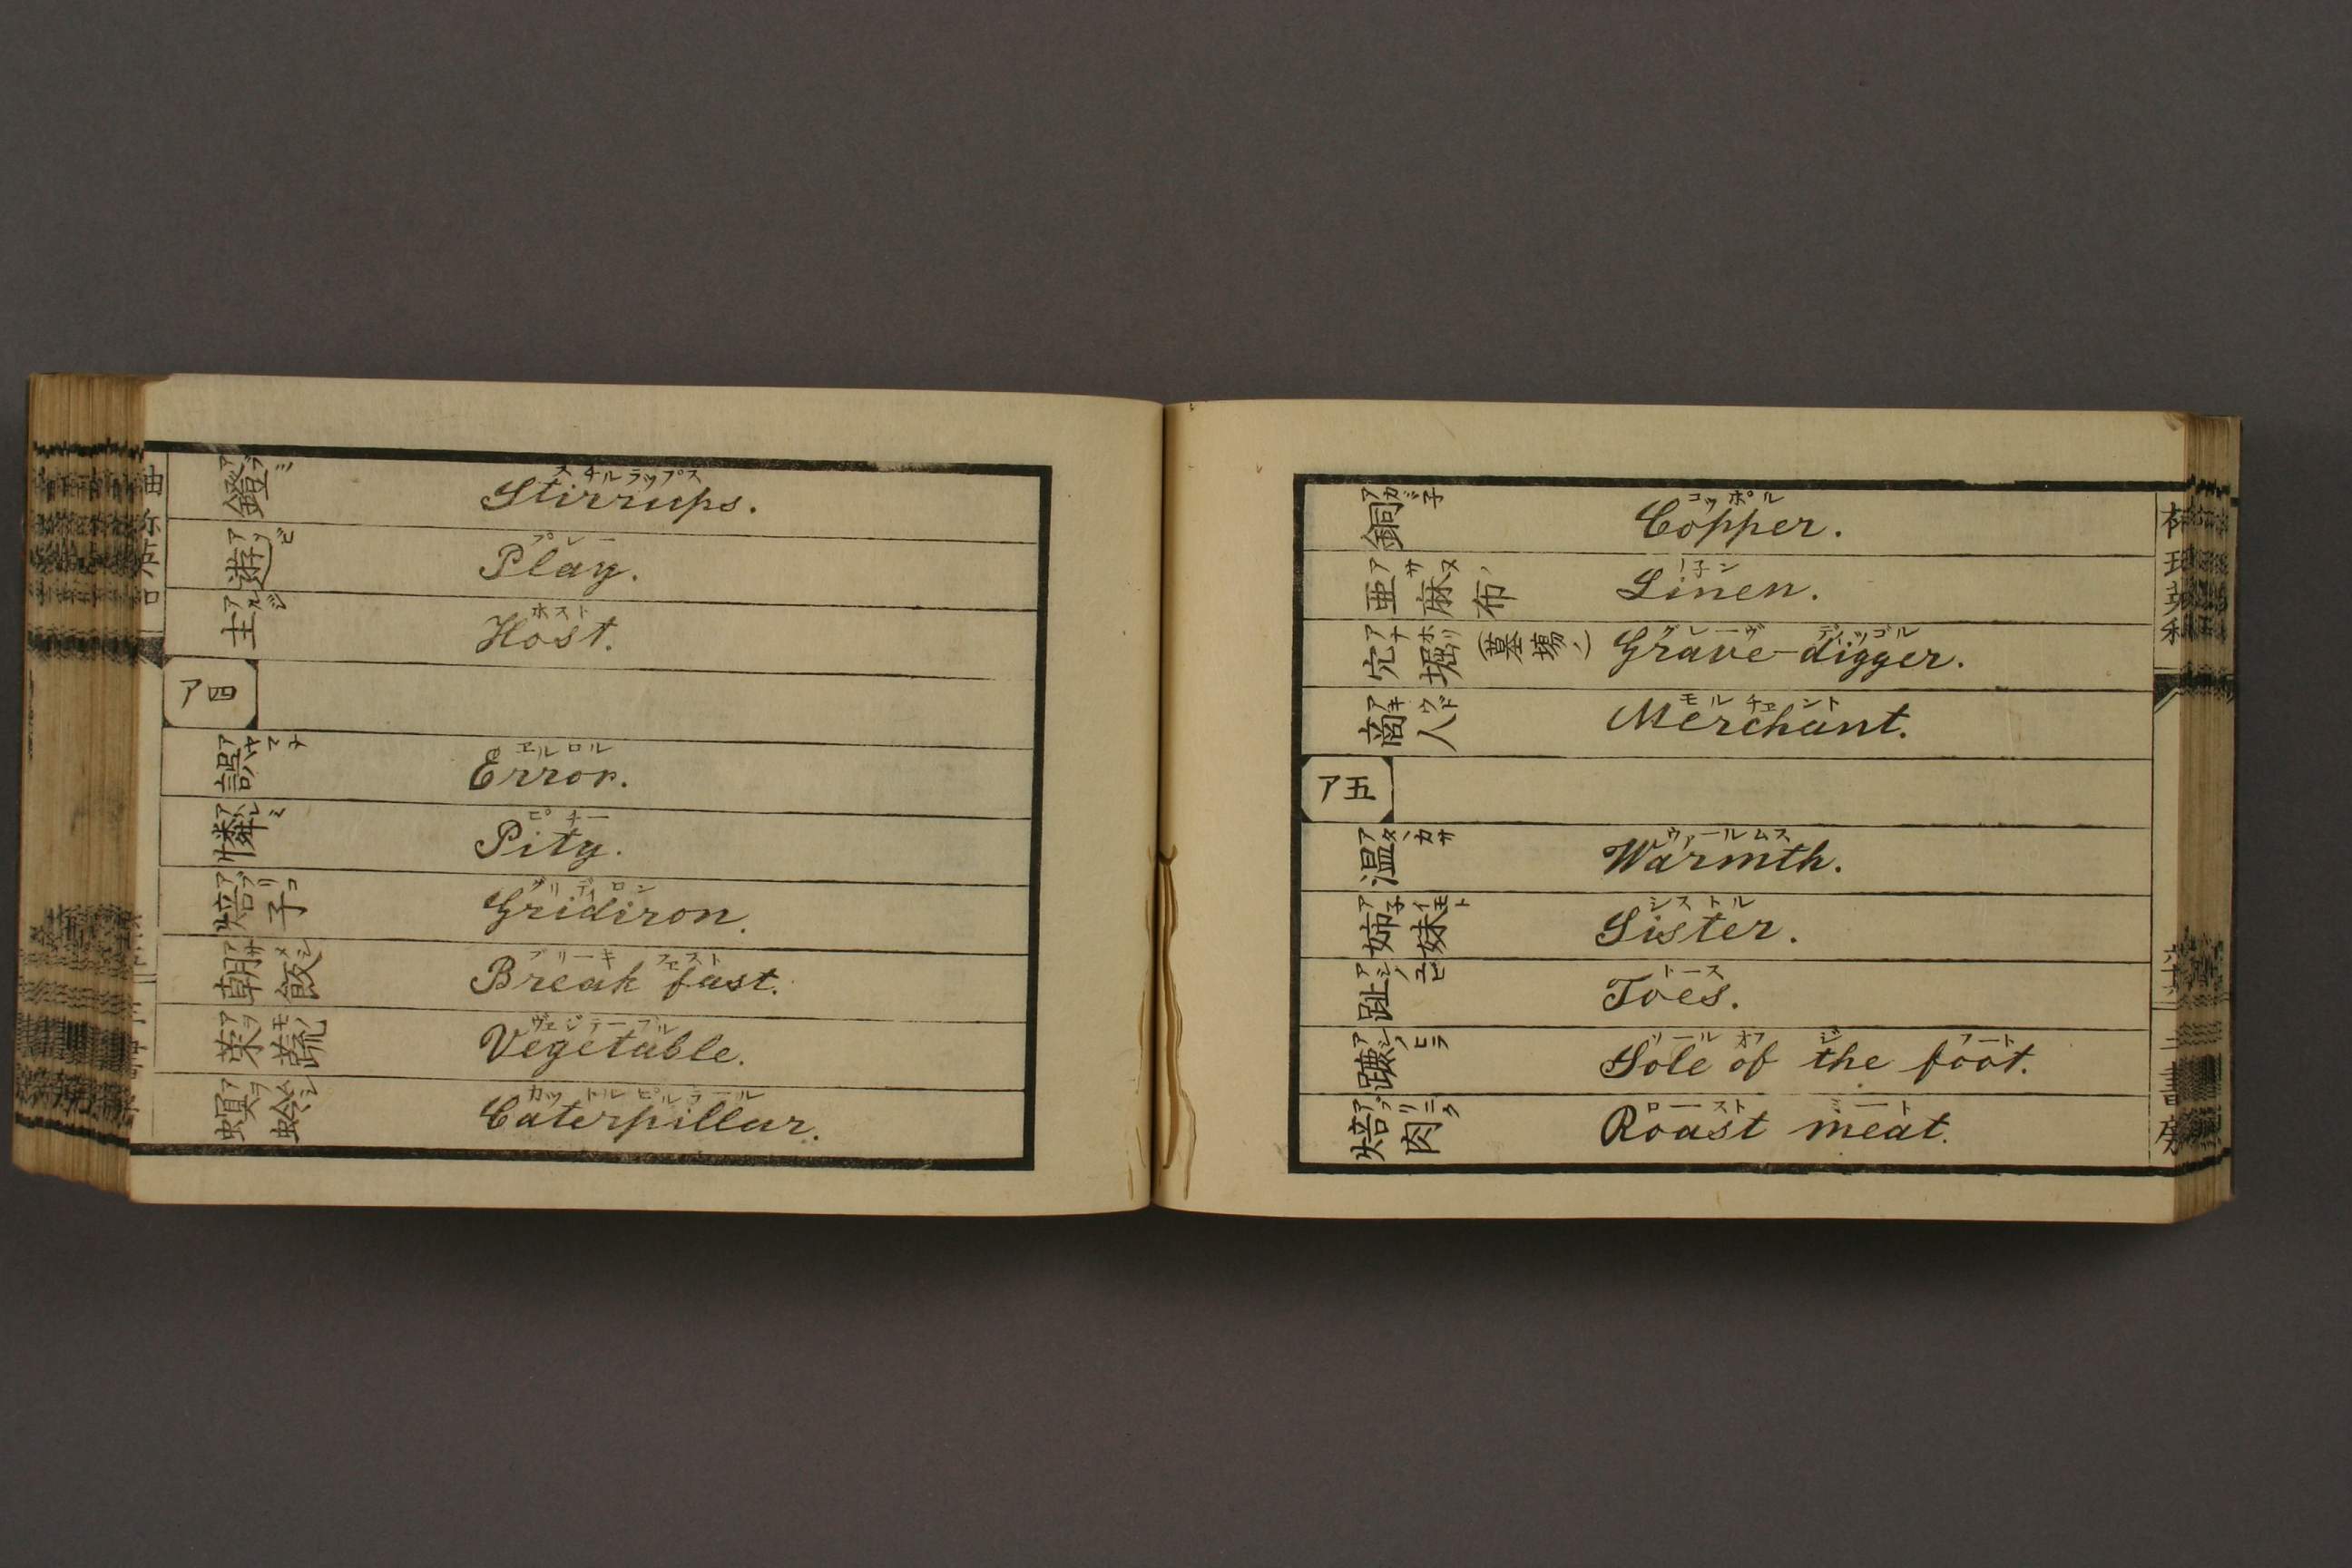 鐙 アブミ スチルラップス Stirrups.
遊 アソビ プレー Play.
主 アルジ ホスト Host.
ア四
誤 アヤマチ ヱルロル Error.
憐 アハレミ ピチー Pity.
焙子 アブリコ グリディロン Gridiron.
朝飯 アサメシ ブリーキ フェスト Break fast.
菜蔬 アヲモノ ヴェジテーブル Vegetable.
螟蛉 アヲムシ カットルピルラール Caterpillar.
銅 アカガ子 コッポル Copper.
亜麻布 アサヌノ リ子ン Linen.
穴堀 アナホリ (墓場ノ) グレーヴ ディッゴル Grave-digger.
商人 アキウド モルチェント Merchant.
ア五
温 アタヽカサ ウァールムス Warmth.
姉妹 ア子イモト シストル Sister.
趾 アシノユビ トース Toes.
アシノヒラ ソール オフ ジ フート Sole of the foot.
焙肉 アブリニク ロースト ミート Roast meat.